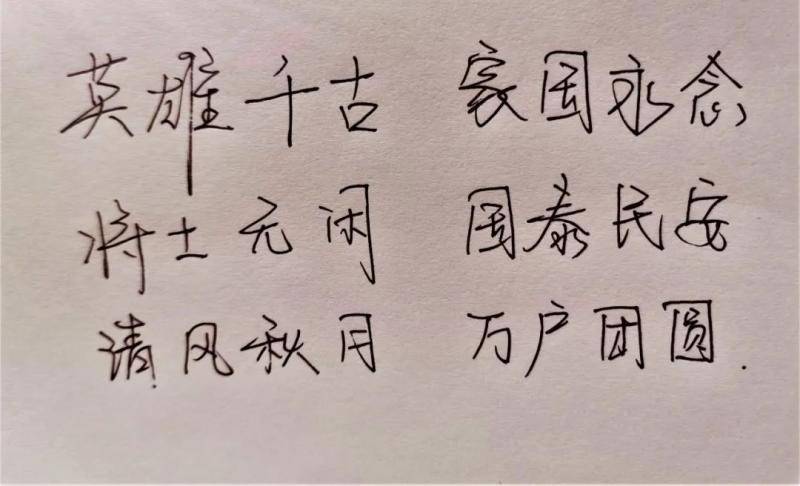 英雄千古 家国永念
将士无闲 国泰民安
清风秋月 万户团圆.